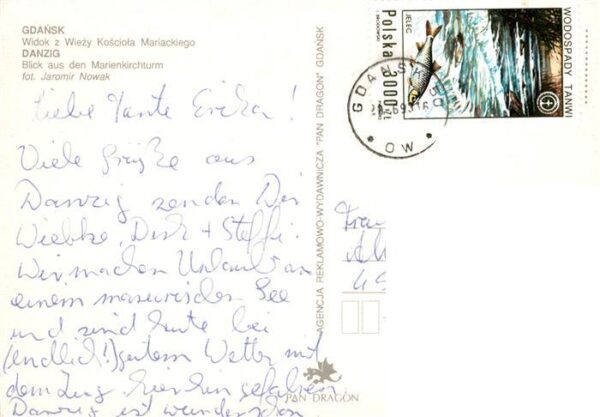 GDAŃSK
Widok z Wieży Kościoła Mariackiego
DANZIG
Blick aus den Marienkirchturm
fot. Jaromir Nowak
Liebe Tante Erika!
Viele Grüße aus
Danzig senden Dir
Wiebke, Dirk + Steffi.
Wir machen Urlaub an
einem masurischen See
und sind heute bei
(endlich!) gutem Wetter mit
dem Zug hierhin gefahren
Danzig ist wunderschön
PAN DRAGON
AGENCJA REKLAMOWO-WYDAWNICZA "PAN DRAGON" GDAŃSK
JELEC
Polska
3000 zł
WODOSPADY TANWI
GDAŃSK 50
OW
Frau